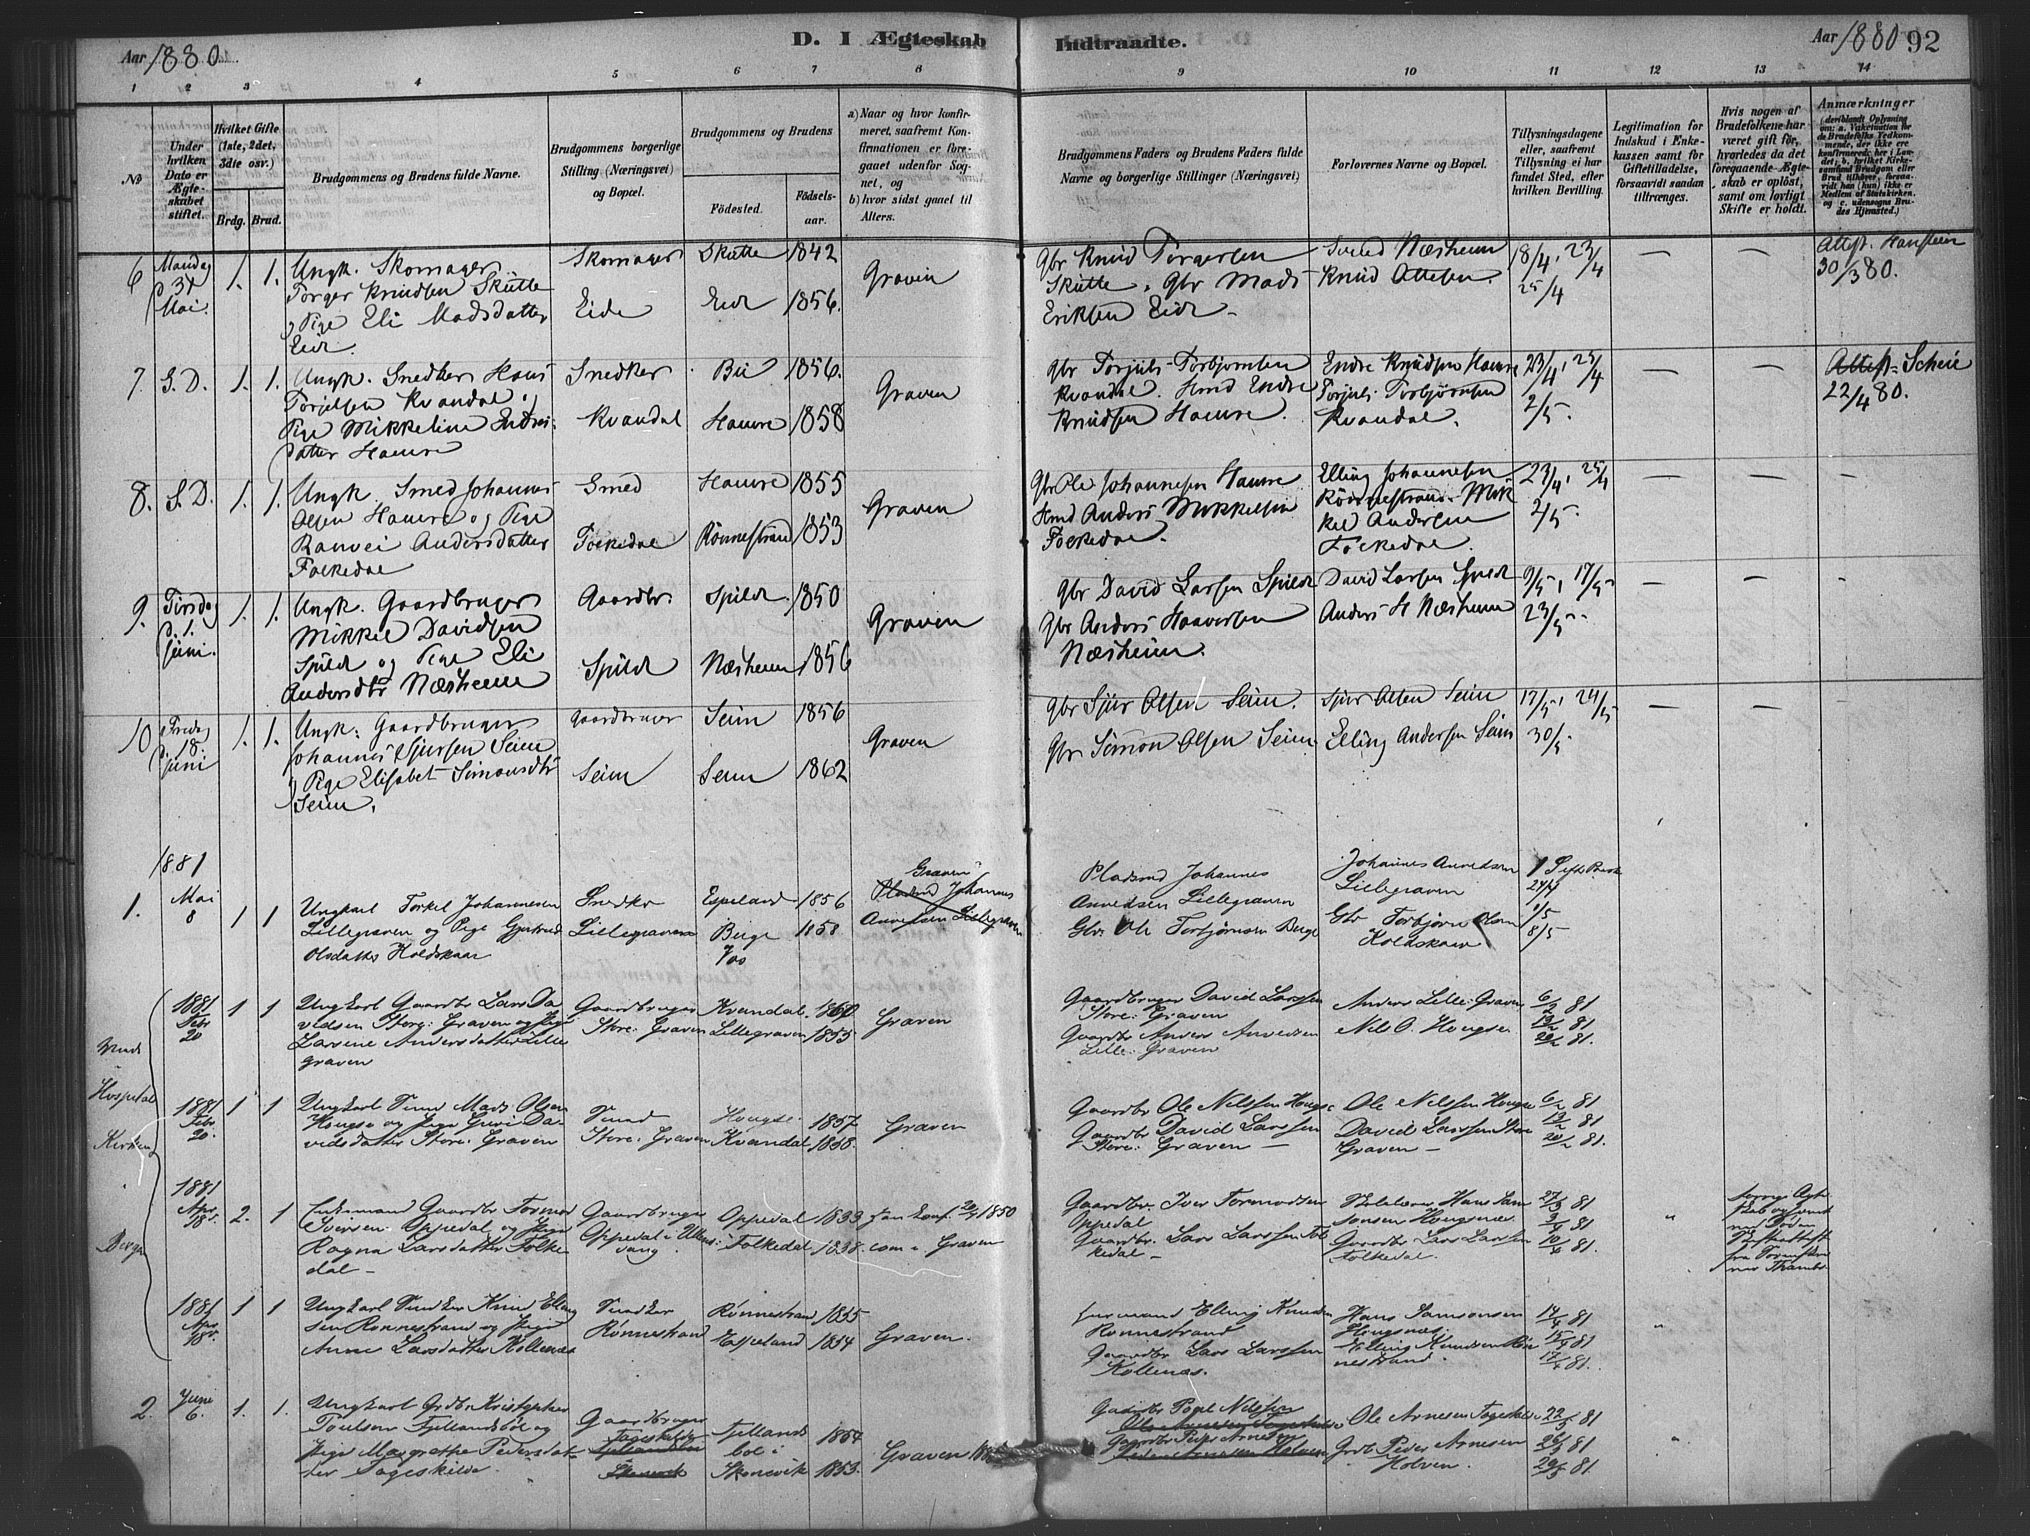 Aar 1880
D. I Ægteskab
Indtraadte.
Aar 1880 92
1 2 3 4 5 6 7 8 9 10 11 12 13 14
No
Under hvilken Dato er Ægteskabet stiftet.
Hvilket Gifte (1ste, 2det, 3die osv.)
Brdg. Brud.
Brudgommens og Brudens fulde Navne.
Brudgommens borgerlige Stilling (Næringsvei) og Bopæl.
Brudgommens og Brudens
Fødested.
Fødselsaar.
a) Naar og hvor konfirmeret, saafremt Konfirmationen er foregaaet udenfor Sognet, og
b) hvor sidst gaaet til Alters.
Brudgommens Faders og Brudens Faders fulde Navne og borgerlige Stillinger (Næringsvei)
Forlovernes Navne og Bopæl.
Tillysningsdagene eller, saafremt Tillysning ei har fundet Sted, efter hvilken Bevilling.
Legitimation for Indskud i Enkekassen samt for Giftetilladelse, forsaavidt saadan tiltrænges.
Hvis nogen af Brudefolkene har været gift før, hvorledes da det foregaaende Ægteskab er opløst, samt om lovligt Skifte er holdt.
Anmærkninger
6 Mandag 31 Mai. 1. 1. Ungk. Skomager
Torger Knudsen Skutte
og Pige Eli Madsdatter
Eide.
Skomager Eide
Skutte 1842
Eide 1856.
Graven
Gbr Knud Torgersen
Skutte. Gbr Mads
Eriksen Eide
Sved Næsheim
Knud Ottesen
18/4, 23/4
25/4
Attest. Hanstein
30/3 80.
7. S.D. 1. 1. Ungk. Snedker Hans
Torjulsen Kvandal.
Pige Mikkeline Endres
datter Haure
Snedker Kvandal
Bu 1856.
Haure 1858
Graven
Gbr Torjuls Torbjørnsen
Kvandal. Hmd Endre
Knudsen Haure.
Endre Knudsen Haure
Torjuls Torbjørnsen
Kvandal.
23/4, 25/4
2/5.
Attest. Scheie
22/4 80.
8. S.D. 1. 1. Ungk. Smed Johannes
Olsen Haure og Pige
Ranvei Andersdatter
Folkedal
Smed Folkedal
Haure 1855
Rønnestrand 1853
Graven
Gbr Ole Johannesen Haure
Hmd Anders Mikkelsen
Folkedal.
Elling Johannesen
Rønnestrand. Mik
kel Andersen
Folkedal.
23/4, 25/4
2/5.
9. Tirsdag d. 1. Juni. 1. 1. Ungk. Gaardbruger
Mikkel Davidsen
Spilde og Pige Eli
Andersdtr Næsheim
Gaardbr. Spilde
Spilde 1850
Næsheim 1856
Graven
Gbr David Larsen Spilde
Gbr Anders Haaversen
Næsheim.
David Larsen Spilde
Anders H Næsheim
9/5, 17/5
23/5
10 Fredag d. 18. Juni 1. 1. Ungk. Gaardbruger
Johannes Sjursen Seim
og Pige Elisabet Simonsdtr
Seim.
Gaardbruger Seim
Seim 1856
Seim 1862
Graven
Gbr Sjur Olsen Seim.
Gbr Simon Olsen Seim
Sjur Olsen Seim
Elling Andersen Seim
17/5, 24/5
30/5
1881
1. Mai 8 1 1 Ungkarl Torkel Johannesen
Lillegraven og Pige Gjertrud
Olsdatter Holdskaar
Snedker
Lillegraven
Espeland 1856
Berge 1858
Voss
Graven
Pladsmd Johannes
Anvedsen Lillegraven
Pladsmd Johannes
Anvedsen Lillegraven
Gbr. Ole Torbjørnsen Berge
Johannes Anvedsen
Lillegraven
Gbr Torbjørn Olsen
Holdskaar
1/5
8/5
1881 Febr 20 1 1 Ungkarl Gaardbr Lars Da
vidsen Store-Graven og Pige
Larine Andersdatter Lille
graven
Gaardbruger
Store-Graven
Kvandal 1860
Lillegraven 1855
Graven
Gaardbruger David Larssen
Store-Graven
Gaardbr Anders Anvedsen
Lille-Graven
Anders Lille-Graven
Nils O. Hougse
6/2 81
13/2 81
20/2 81.
1881 Febr. 20. 1 1 Ungkarl Mads Olsen
Hougse og Pige Guri Da
vidsdatter Store-Graven
Store-Graven
Hougse 1857
Kvandal 1858.
Graven
Gaardbr Ole Nilssen Hougse
Gaardbr David Larssen
Store-Graven
Ole Nilssen Hougse
David Larssen Store
Graven
6/2 81
13/2 81
20/2 81.
Hospital
Kirken
Bergen
1881 Apr 18. 2. 1 Enkemand Gaardbr Tormod
Iversen Oppedal og Pige
Ragna Larsdatter Folke
dal
Gaardbruger
Oppedal i Ullens-
vang
Oppedal 1833
Folkedal 1858.
com. i Graven
Gaardbr. Iver Tormodsen
Oppedal
Gaardbr. Lars Larssen Fol
kedal
Hans Sam
sonsen Hougsnes
Gaardbr Lars Larssen
Folkedal.
27/3 81
3/4 81
10/4 81.
1881 Apr 18. 1 1 Ungkarl Knud Elling
sen Rønnestrand og Pige
Anne Larsdatter Kollenæs
Rønnestrand
Rønnestrand 1855
Espeland 1854
Graven.
Elling Knudsen
Rønnestrand
Gaardbr Lars Larssen
Kollenæs.
Hans Samsonsen
Hougsnes.
Elling Knudsen Røn
nestrand.
14/4 81
15/4 81
17/4 81.
2. Juni 6. 1. 1. Ungkarl Grdbr Kristopher
Poulsen Fjellandsbøl og
Pige Margrethe Pedersdat-
ter Tageskilde
Gaardbruger
Tageskilde
Fjellandsbøl
Skonevik
Fjellands
bøl i
Skonevik
1854
1853.
Graven
Gaardbr Poul Nilsen
Ole Arnesen Tageskilde
Gaardbr Peder Arnesen
Pedersen Arnesen Holven
Ole Arnesen Tageskilde
Grdb Peder Arnesen
Holven.
22/5 81
26/5 81
29/5 81.